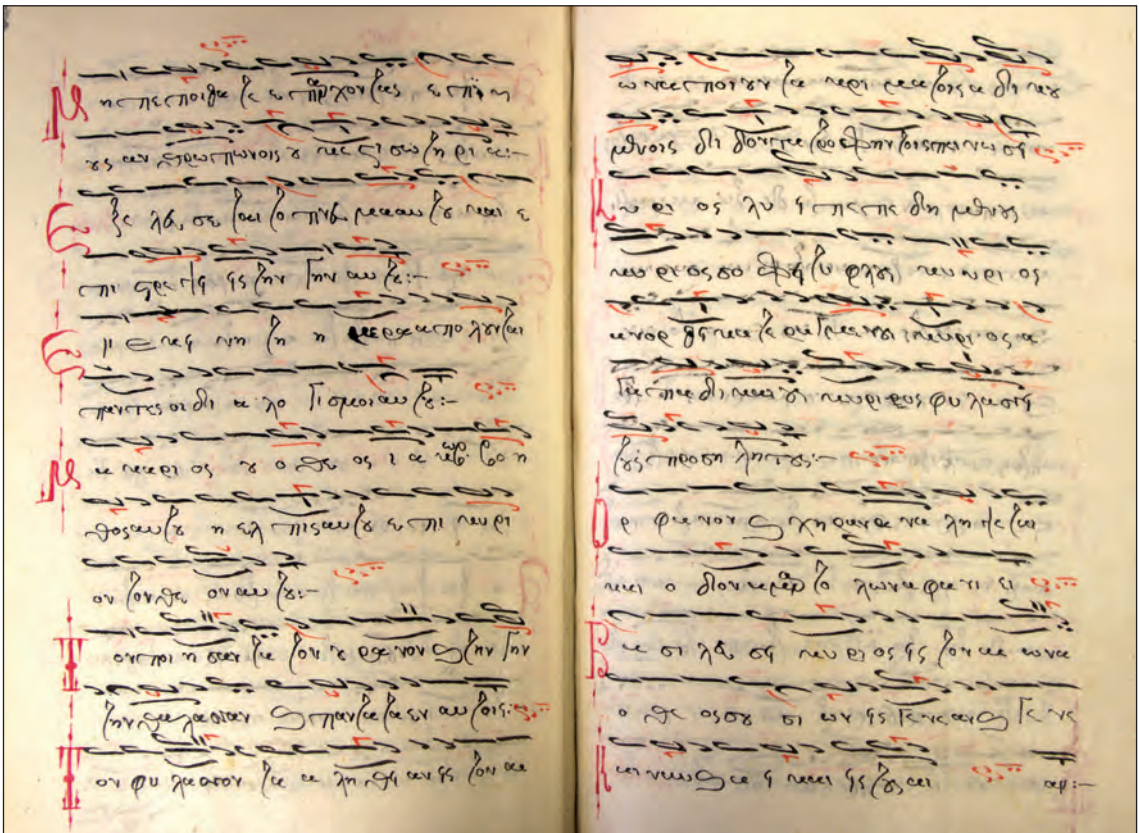 Μη πεποιθατε επ αρχοντας επι υι
ους ανθρωπων οις ουκ εστι σωτηρια:-
Εξελευσεται το πνευμα αυτου και ε
πιστρεψει εις την γην αυτου:-
Εν εκεινη τη ημερα απολουνται
παντες οι διαλογισμοι αυτου:-
Μακαριος ου ο θεος ιακωβ βοη
θος αυτου η ελπις αυτου επι κυρι
ον τον θεον αυτου:-
Τον ποιησαντα τον ουρανον και την γην
την θαλασσαν και παντα τα εν αυτοις:-
Τον φυλασσοντα αληθειαν εις τον αι
ωνα ποιουντα κριμα τοις αδικου
μενοις διδοντα τροφην τοις πεινωσι
Κυριος λυει πεπεδημενους
κυριος σοφοι τυφλους κυριος
ανορθοι κατερραγμενους κυριος α
γαπα δικαιους κυριος φυλασσει
τους προσηλυτους:-
Ορφανον και χηραν αναληψεται
και οδον αμαρτωλων αφανιει
Βασιλευσει κυριος εις τον αιωνα
ο θεος σου σιων εις γενεαν και γενε
Και νυν και αει και εις τους αι αρ:-